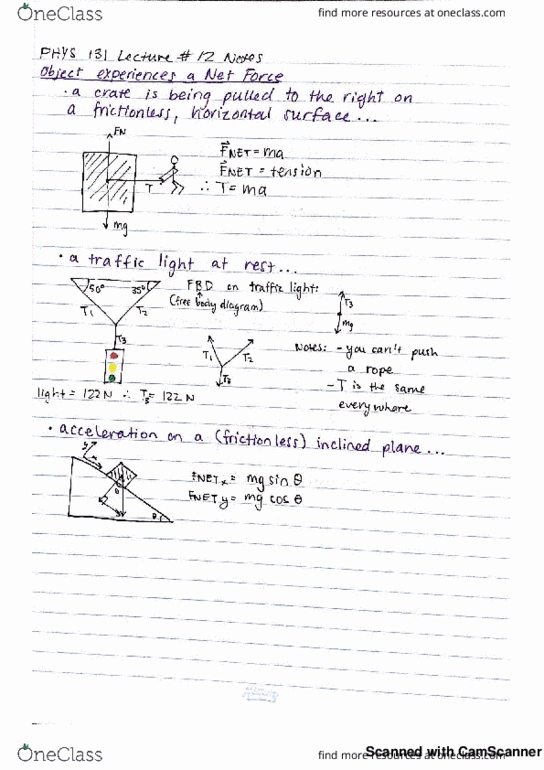 OneClass
find more resources at oneclass.com
PHYS 131 Lecture # 12 Notes
Object experiences a Net Force
· a crate is being pulled to the right on
a frictionless, horizontal surface...
FN
T
mg
FNET = ma
FNET = tension
∴ T = ma
· a traffic light at rest...
50° 35°
T1 T2
T3
FBD on traffic light:
(free body diagram)
T1 T2
T3
T3
mg
Notes: - you can't push
a rope
- T is the same
everywhere
light = 122 N ∴ T3 = 122 N
· acceleration on a (frictionless) inclined plane...
y
x
θ
θ
FNETx = mg sin θ
FNETy = mg cos θ
OneClass
find more resources at oneclass.com
Scanned with CamScanner